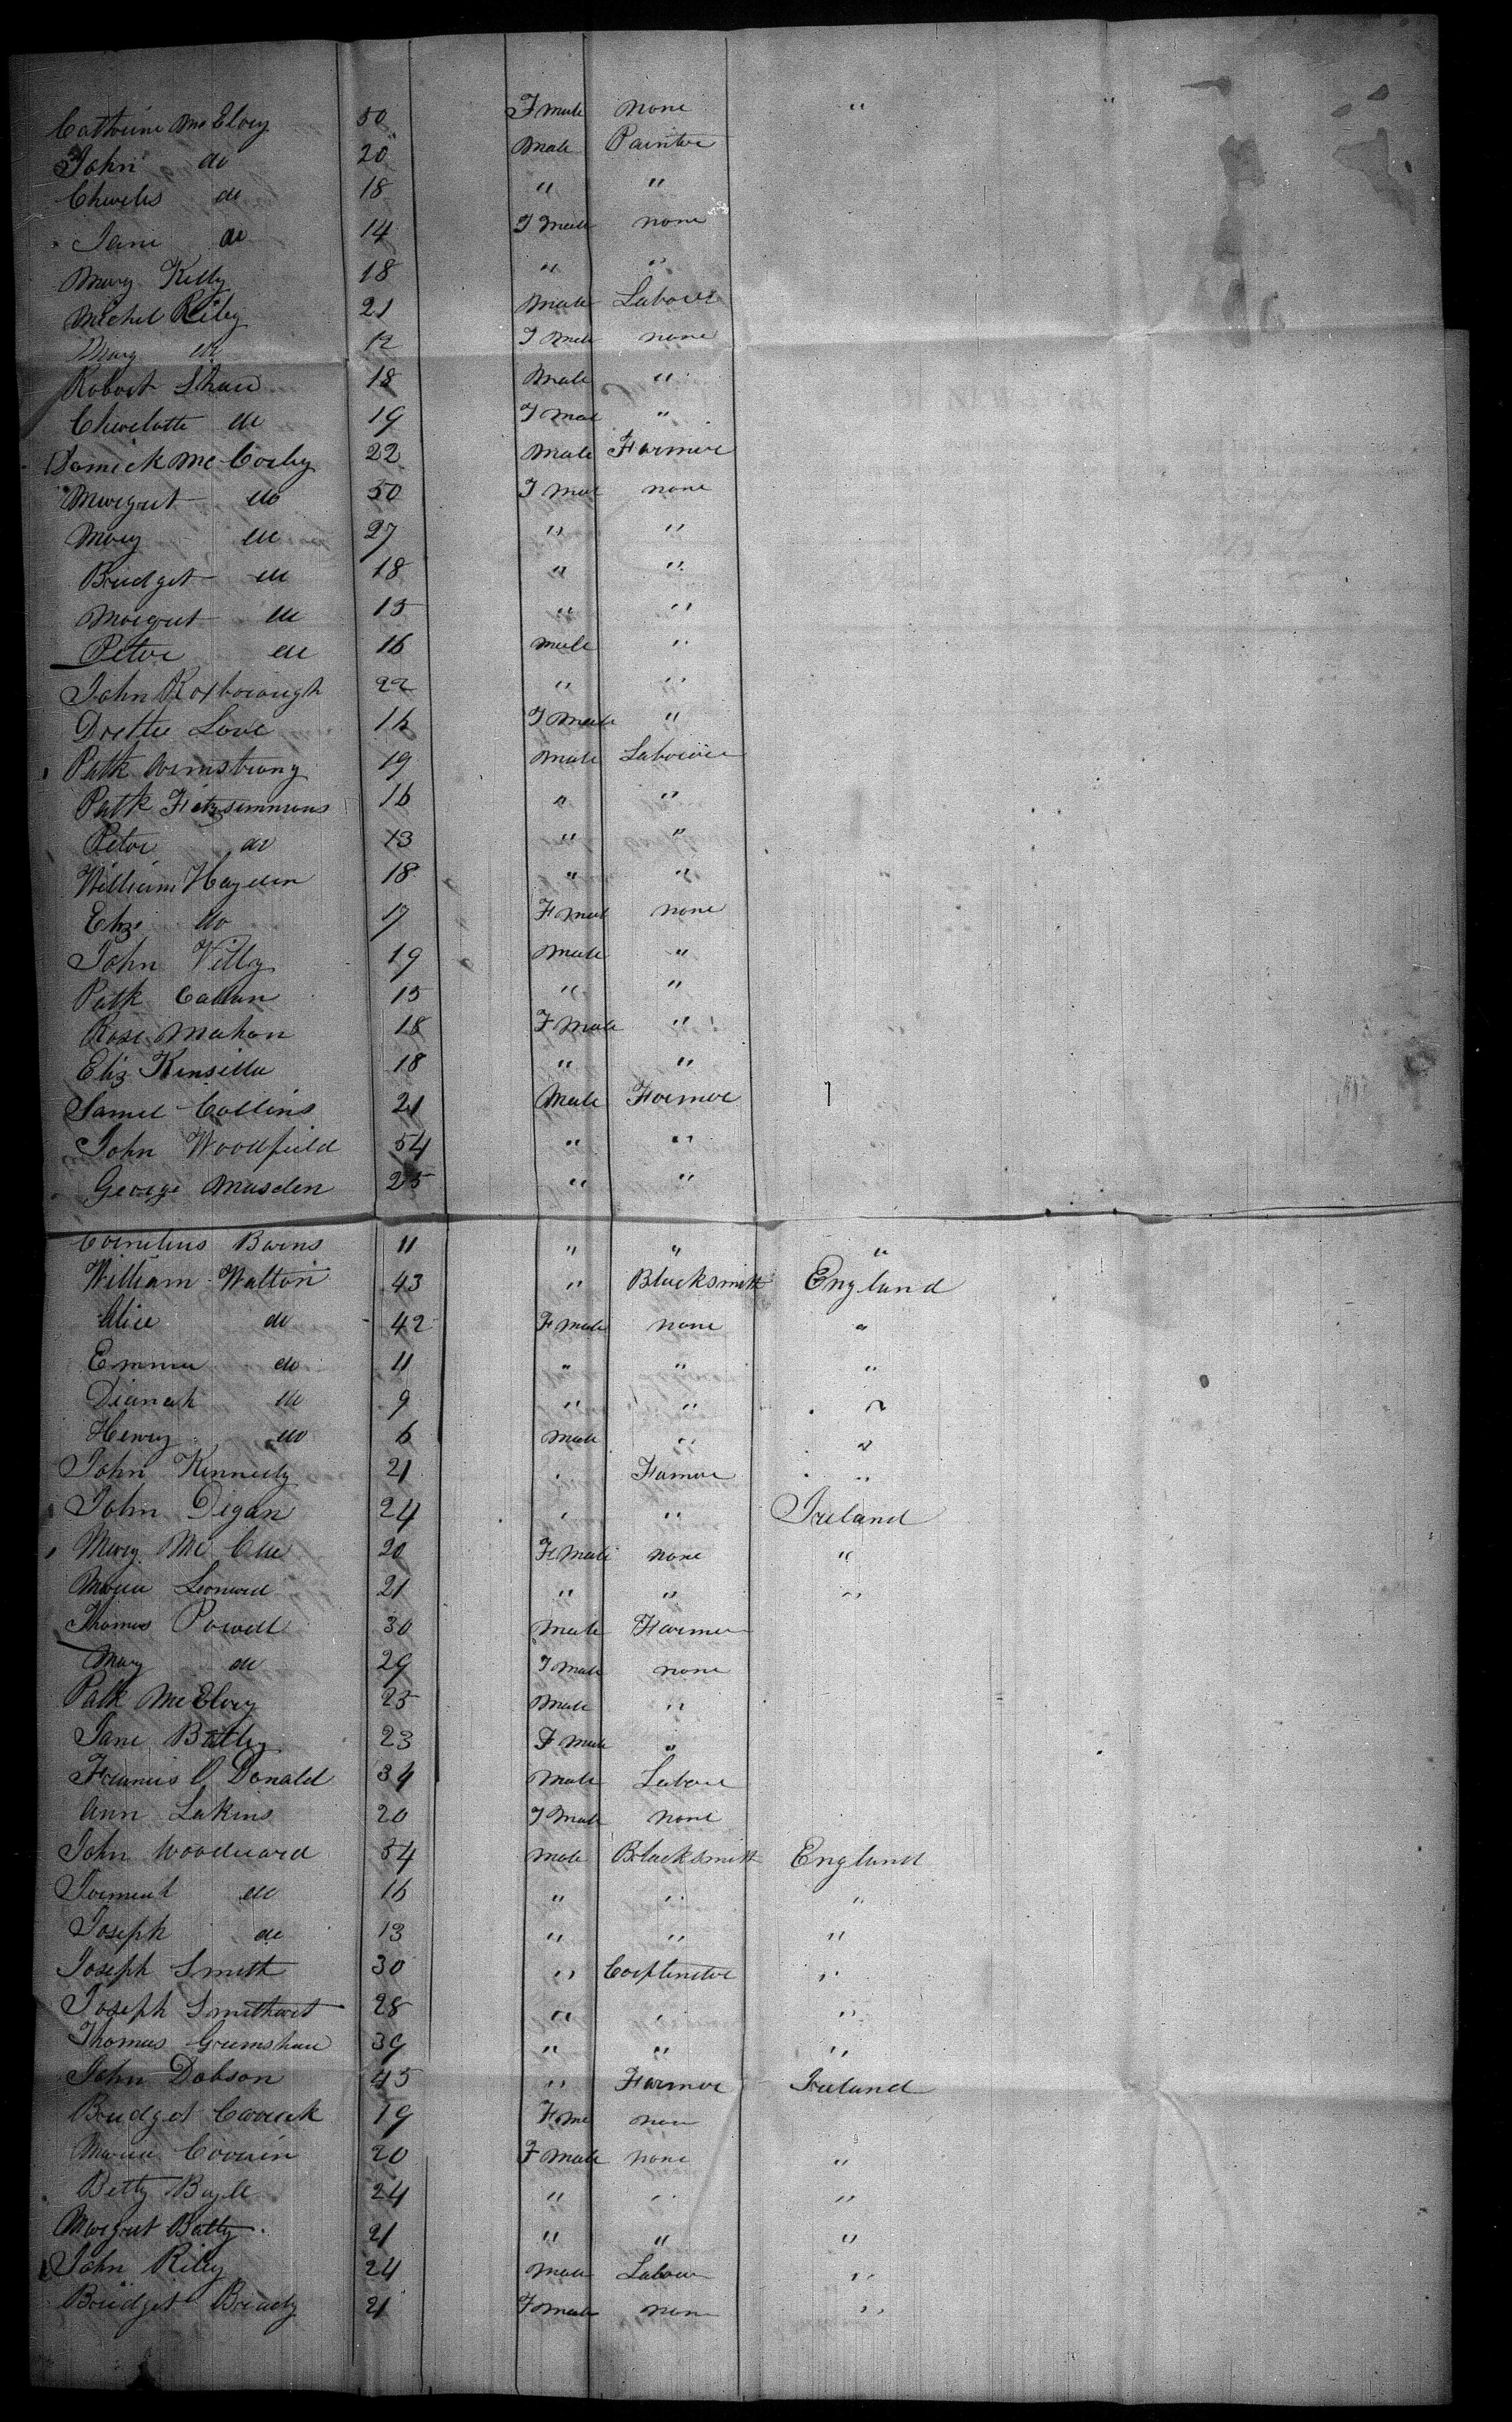 Catherine McElvey 50 Fmale none " "
John do 20 Male Painter
Charles do 18 " "
Jane do 14 Fmale none
Mary Kelly 18 " "
Michel Riley 21 Male Labour
Mary do 12 Fmale none
Robert Shaw 18 Male "
Charlotte do 19 Fmal "
McCorley 22 Male Farmer
Margret do 50 Fmal none
Mary do 27 " "
Bridget do 18 " "
Margret do 15 " "
Peter do 16 male "
John Roxborough 22 " "
Love 16 Fmale "
Patk Armstrong 19 Male Labourer
Patk Fitzsimmons 16 " "
Peter do 13 " "
William Hayden 18 " "
Eliz do 17 Fmal none
John 19 male "
Patk Callan 15 " "
Rose Mahon 18 Fmale "
Eliz Kinsilla 18 " "
Samel Collins 21 Male Farmer
John Woodfield 54 " "
George Masden 25 " "
Cornelius Barns 11 " " "
William Walton 43 " Blacksmith England
Alice do 42 Fmale none "
Emma do 11 " " "
Dianah do 9 " " "
Henry do 6 Male " "
John Kennedy 21 " Farmer "
John Digan 24 " " Ireland
Mary Mc Cue 20 Fmale none "
Maria Leonard 21 " " "
Thomas Powell 30 male Farmer
Mary do 29 Fmale none
Patk McElvey 25 Male "
Jane Batley 23 Fmale "
Francis O Donald 34 Male Labour
Ann Lakins 20 Fmale none
John Woodward 54 male Blacksmith England
do 16 " " "
Joseph do 13 " " "
Joseph Smith 30 " "
Joseph 28 " " "
Thomas Grimshaw 39 " " "
John Dobson 45 " Farmer Ireland
Bridget 19 Fme non
Maria 20 Fmale none "
Betty Boyle 24 " " "
Margret Batty 21 " " "
John Riley 24 Male Labour "
Bridget Bready 21 Fmale non "